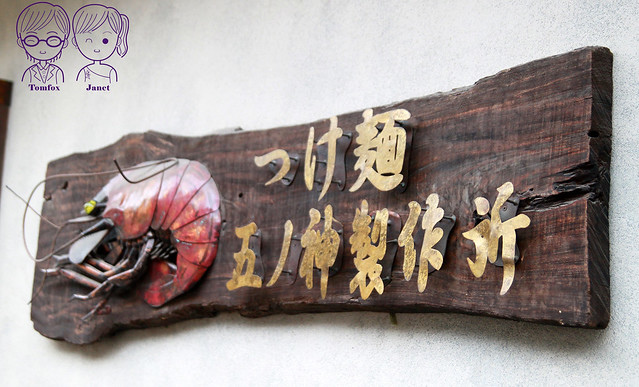 Tomfox Janet
つけ麺
五ノ神製作所